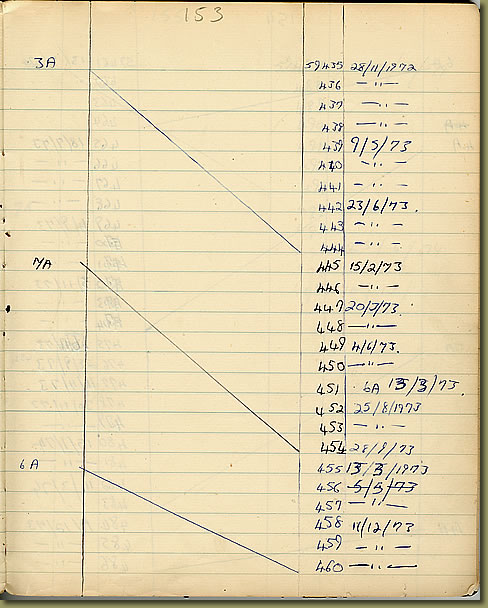 153
3A 59435 28/11/1972
436 — " —
437 — " —
438 — " —
439 9/5/73
440 — " —
441 — " —
442 23/6/73.
443 — " —
444 — " —
7A 445 15/2/73
446 — " —
447 20/3/73
448 — " —
449 4/6/73.
450 — " —
451 6A 13/3/73.
452 25/8/1973
453 — " —
454 28/9/73
6A 455 13/3/1973
456 5/3/73
457 — " —
458 11/12/73
459 — " —
460 — " —